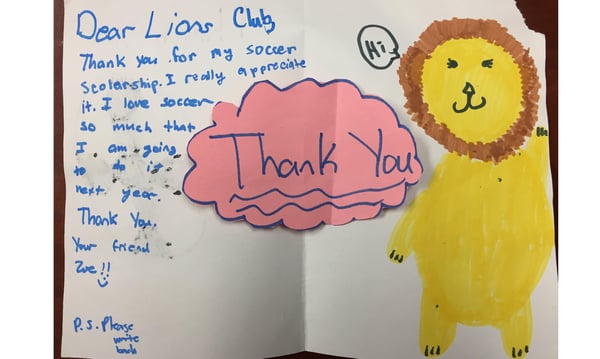 Dear Lions Club,
Thank you for my soccer
scolarship. I really appreciate
it. I love soccer
so much that
I am going
to do it
next year.
Thank You
Your friend
Zoe!!
P.S. Please
write
back
Thank You
Hi